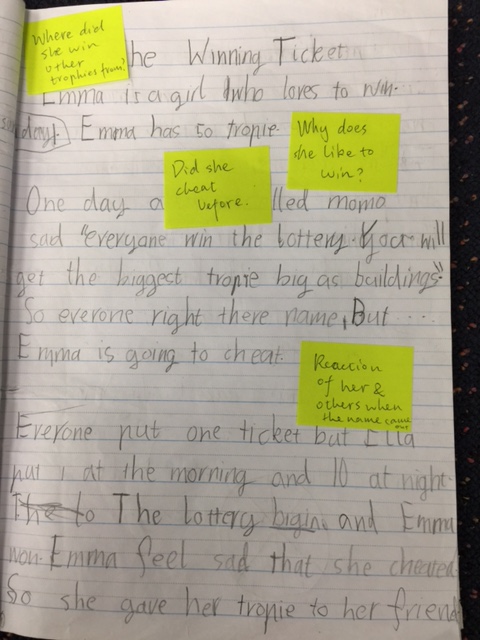 Where did
she win
other
trophies from?
he Winning Ticket
Emma is a girl who loves to win.
day. Emma has 50 tropie
Why does
she like to
win?
Did she
cheat
before.
One day a lled momo
sad "everyone win the lottery. Your will
get the biggest tropie big as buildings"
So everone right there name, But ....
Emma is going to cheat.
Reaction
of her &
others when
the name came
out
Everone put one ticket but Ella
put 1 at the morning and 10 at night.
The to The lottery bigin. and Emma
won. Emma feel sad that she cheated
So she gave her tropie to her friend